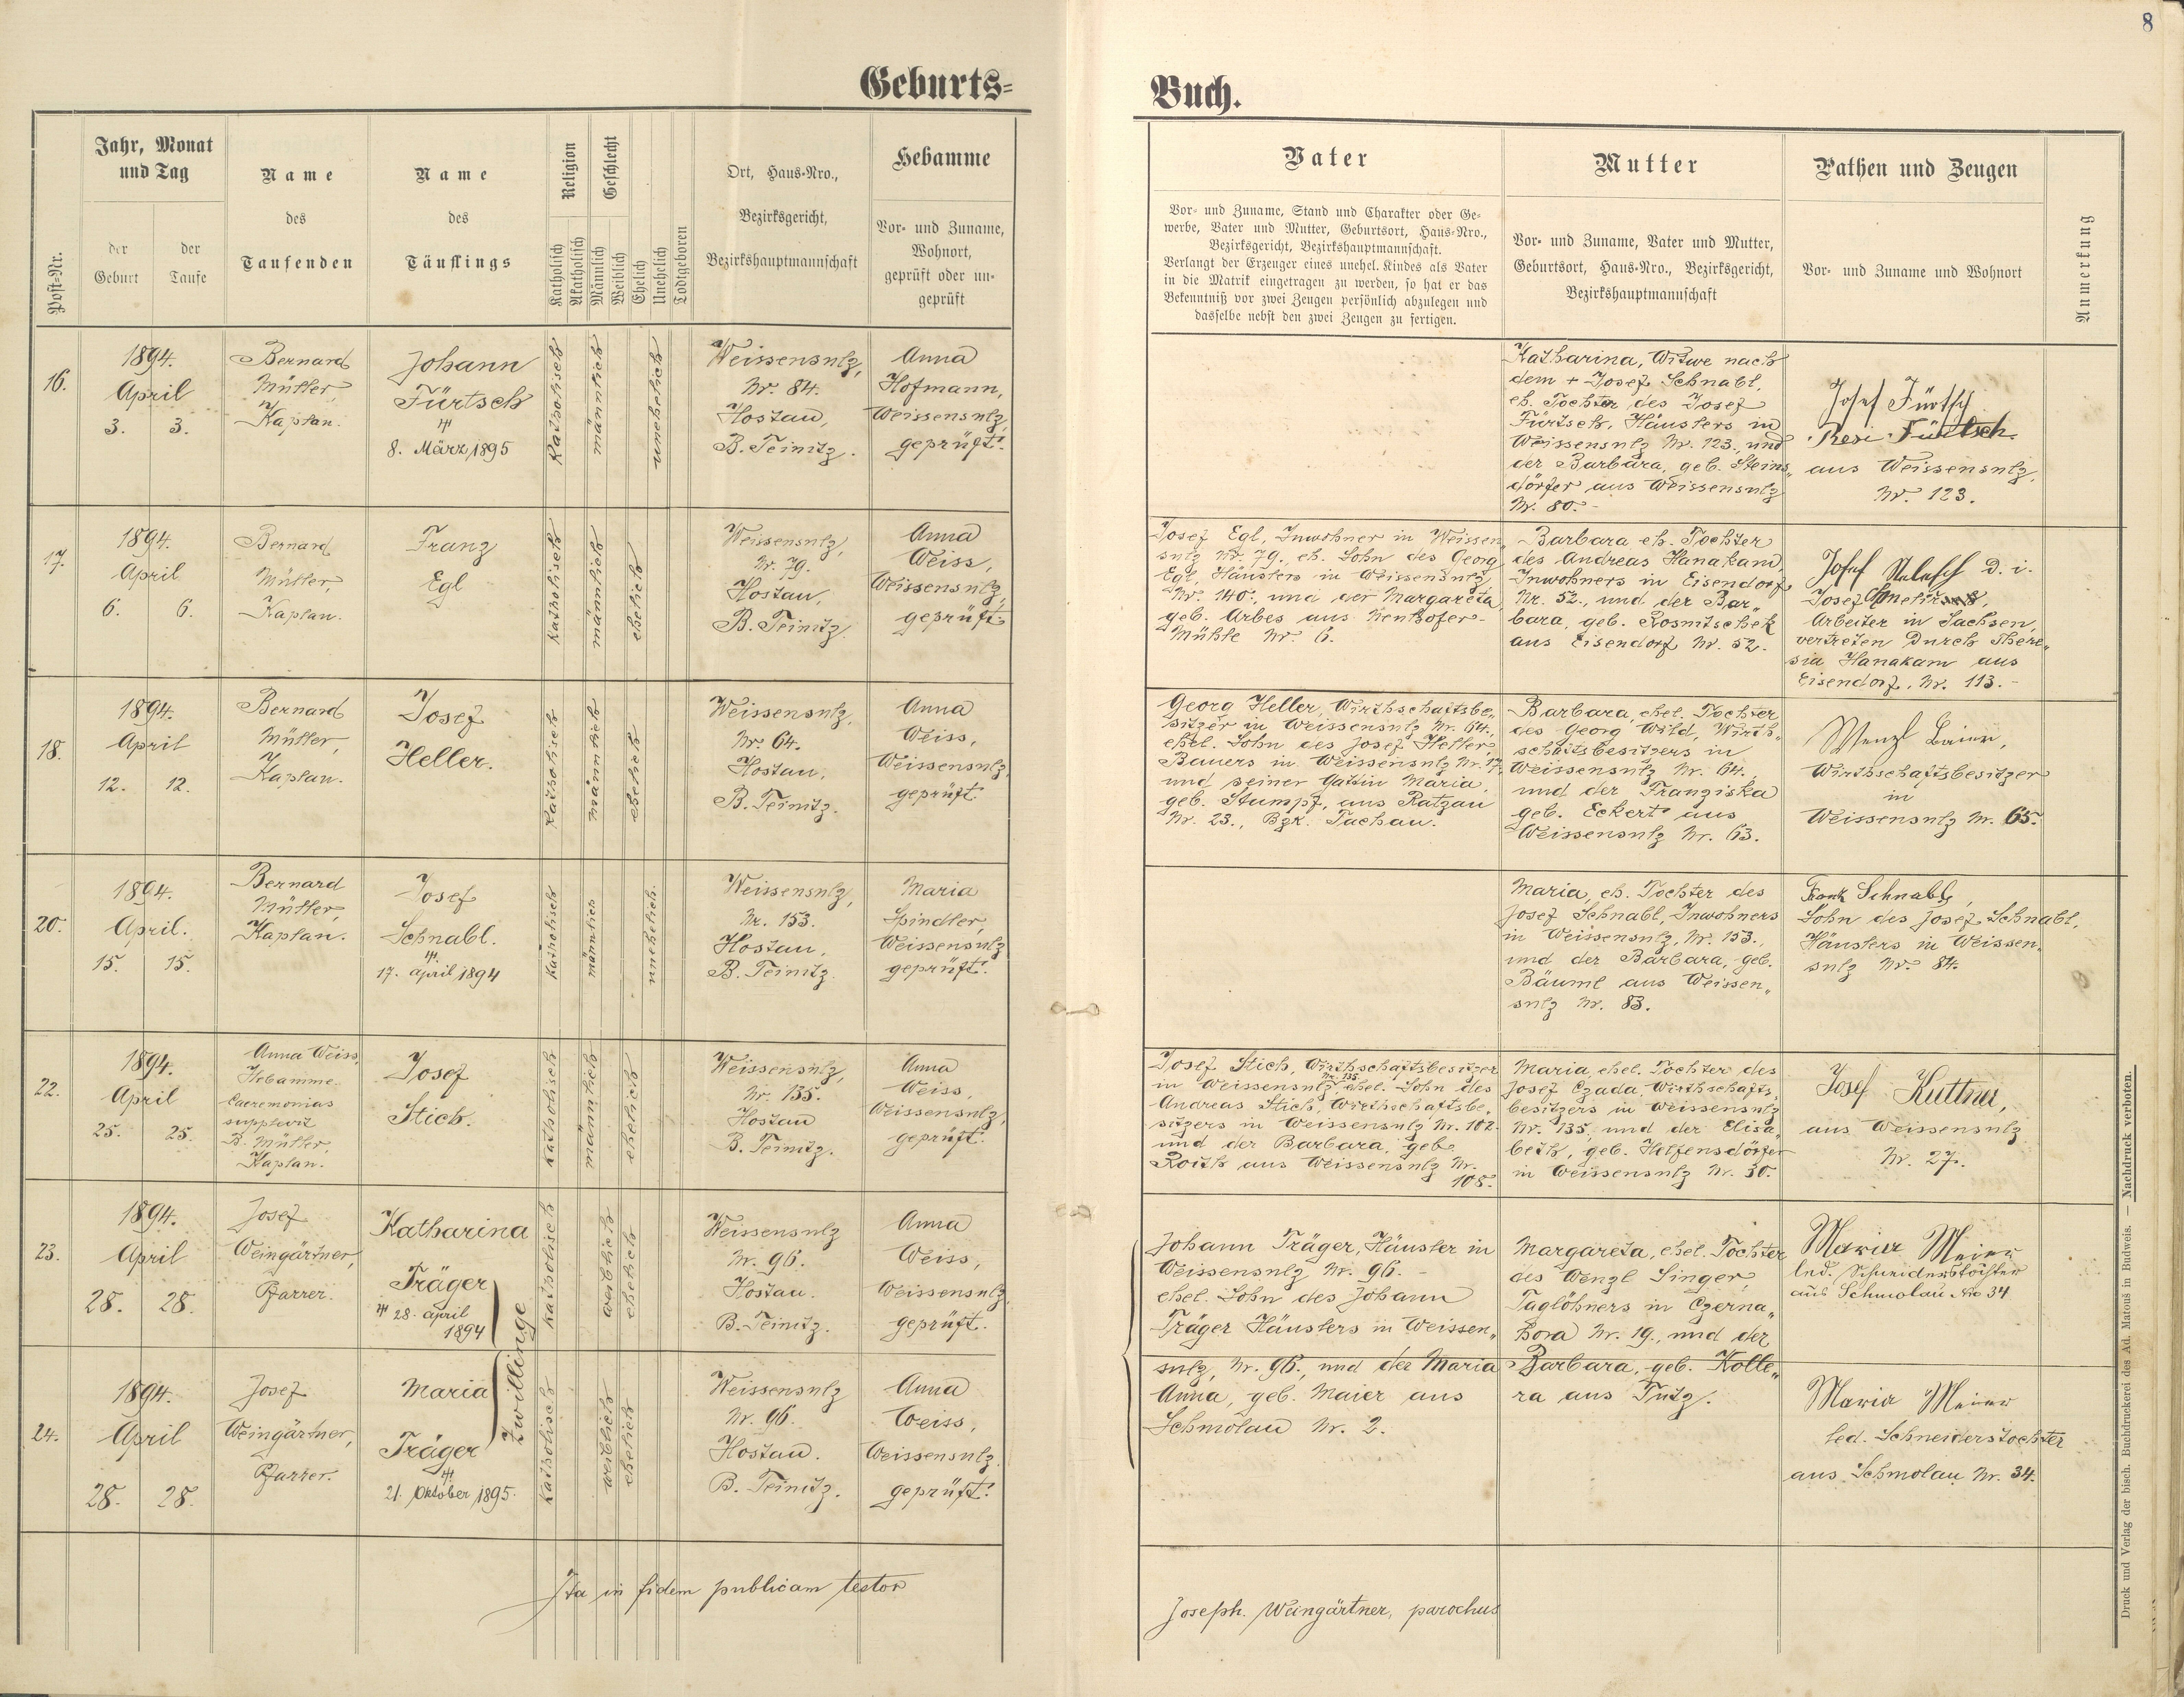 8
Geburts=
Buch.
Post-Nr.
Jahr, Monat
und Tag
der
Geburt
der
Taufe
Name
des
Taufenden
Name
des
Täuflings
Religion
Katholisch
Akatholisch
Geschlecht
Männlich
Weiblich
Ehelich
Unehelich
Todtgeboren
Ort, Haus-Nro.,
Bezirksgericht,
Bezirkshauptmannschaft
Hebamme
Vor- und Zuname,
Wohnort,
geprüft oder un-
geprüft
Vater
Vor- und Zuname, Stand und Charakter oder Ge-
werbe, Vater und Mutter, Geburtsort, Haus-Nro.,
Bezirksgericht, Bezirkshauptmannschaft.
Verlangt der Erzeuger eines unehel. Kindes als Vater
in die Matrik eingetragen zu werden, so hat er das
Bekenntniß vor zwei Zeugen persönlich abzulegen und
dasselbe nebst den zwei Zeugen zu fertigen.
Mutter
Vor- und Zuname, Vater und Mutter,
Geburtsort, Haus-Nro., Bezirksgericht,
Bezirkshauptmannschaft
Pathen und Zeugen
Vor- und Zuname und Wohnort
Anmerkung
16.
1894.
April
3. 3.
Bernard
Müller,
Kaplan.
Johann
Fürtsch
8. März 1895
katholisch
männlich
unehelich
Weissensulz,
Nr. 84.
Hostau,
B. Teinitz.
Anna
Hofmann,
Weissensulz,
geprüft.
Katharina, Witwe nach
dem + Josef Schnabl,
eh. Tochter des Josef
Fürtsch, Häuslers in
Weissensulz Nr. 123, und
der Barbara, geb. Steins„
dörfer aus Weissensulz
Nr. 80.
Josef Fürtsch
Resi Fürtsch
aus Weissensulz,
Nr. 123.
17.
1894.
April
6. 6.
Bernard
Müller,
Kaplan.
Franz
Egl
katholisch
männlich
ehelich
Weissensulz,
Nr. 79.
Hostau,
B. Teinitz.
Anna
Weiss,
Weissensulz,
geprüft.
Josef Egl, Inwohner in Weissen„
sulz Nr. 79., eh. Sohn des Georg
Egl, Häuslers in Weissensulz
Nr. 140., und der Margareta,
geb. Arbes aus Nenthofer-
Mühle Nr. 6.
Barbara eh. Tochter
des Andreas Hanakam,
Inwohners in Eisendorf
Nr. 52., und der Bar„
bara, geb. Rosmitschek
aus Eisendorf Nr. 52.
Josef d. i.
Josef
Arbeiter in Sachsen,
vertreten durch There„
sia Hanakam aus
Eisendorf, Nr. 113.
18.
1894.
April
12. 12.
Bernard
Müller,
Kaplan.
Josef
Heller.
katholisch
männlich
ehelich
Weissensulz,
Nr. 64.
Hostau,
B. Teinitz.
Anna
Weiss,
Weissensulz,
geprüft.
Georg Heller, Wirthschaftsbe„
sitzer in Weissensulz Nr. 64.,
ehel. Sohn des Josef Heller,
Bauers in Weissensulz Nr. 17,
und seiner Gattin Maria,
geb. Stumpf, aus Ratzau
Nr. 23., Bzk. Tachau.
Barbara, ehel. Tochter
des Georg Wild, Wirth„
schaftsbesitzers in
Weissensulz Nr. 64.,
und der Franziska
geb. Eckert aus
Weissensulz Nr. 63.
Wenzl Baier,
Wirthschaftsbesitzer
in
Weissensulz Nr. 65.
20.
1894.
April.
15. 15.
Bernard
Müller,
Kaplan.
Josef
Schnabl.
17. April 1894
katholisch
männlich
unehelich.
Weissensulz,
Nr. 153.
Hostau,
B. Teinitz.
Maria
Spindler,
Weissensulz
geprüft.
Maria, eh. Tochter des
Josef Schnabl, Inwohners
in Weissensulz, Nr. 153.,
und der Barbara, geb.
Bäuml aus Weissen„
sulz Nr. 83.
Frank Schnabl,
Sohn des Josef Schnabl,
Häuslers in Weissen„
sulz Nr. 84.
22.
1894.
April
25. 25.
Anna Weiss,
Hebamme.
Caeremonias
supplevit
B. Müller,
Kaplan.
Josef
Stich.
katholisch
männlich
ehelich
Weissensulz,
Nr. 135.
Hostau
B. Teinitz.
Anna
Weiss,
Weissensulz,
geprüft.
Josef Stich, Wirthschaftsbesitzer
in Weissensulz Nr. 135. ehel. Sohn des
Andreas Stich, Wirthschaftsbe„
sitzers in Weissensulz Nr. 102.
und der Barbara, geb.
Roith aus Weissensulz Nr.
108.
Maria, ehel. Tochter des
Josef Czada, Wirthschafts„
besitzers in Weissensulz
Nr. 135, und der Elisa„
beth, geb. Helfensdörfer
in Weissensulz Nr. 30.
Josef Kuttner,
aus Weissensulz
Nr. 27.
23.
1894.
April
28. 28.
Josef
Weingärtner,
Pfarrer.
Katharina
Träger
28. April
1894
Zwillinge
katholisch
weiblich
ehelich
Weissensulz
Nr. 96.
Hostau.
B. Teinitz.
Anna
Weiss,
Weissensulz,
geprüft.
Johann Träger, Häusler in
Weissensulz Nr. 96.
ehel. Sohn des Johann
Träger Häuslers in Weissen„
sulz, Nr. 96., und der Maria
Anna, geb. Maier aus
Schmolau Nr. 2.
Margareta, ehel. Tochter
des Wenzl Singer,
Taglöhners in Czerna„
hora Nr. 19., und der
Barbara, geb. Kolle„
ra aus Tutz.
Maria Meier
led. Schneiderstochter
aus Schmolau No 34
24.
1894.
April
28. 28.
Josef
Weingärtner,
Pfarrer.
Maria
Träger
21. Oktober 1895.
katholisch
weiblich
ehelich
Weissensulz
Nr. 96.
Hostau.
B. Teinitz.
Anna
Weiss,
Weissensulz,
geprüft.
Maria Meier
led. Schneiderstochter
aus Schmolau Nr. 34.
Ita in fidem publicam testor
Joseph. Weingärtner, parochus
Druck und Verlag der bisch. Buchdruckerei des Ad. Matouš in Budweis. — Nachdruck verboten.